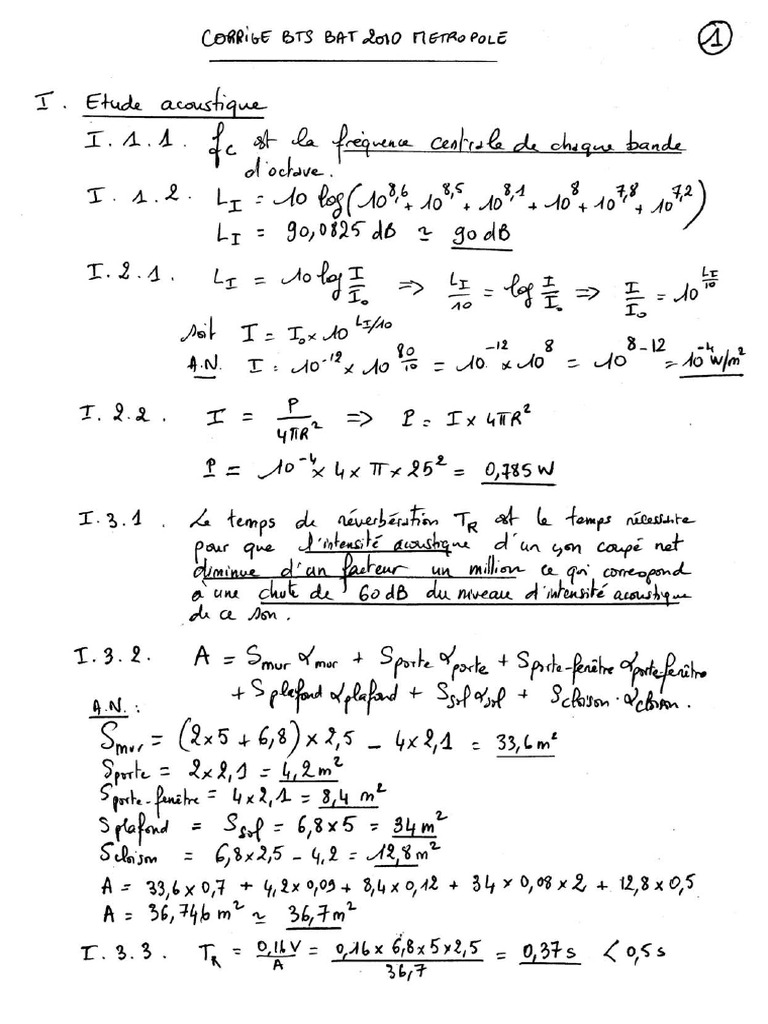 CORRIGE BTS BAT 2010 METROPOLE
1
I. Etude acoustique
I.1.1. fc est la fréquence centrale de chaque bande
d'octave.
I.1.2. L_I = 10 log(10^8,6 + 10^8,5 + 10^8,1 + 10^8 + 10^7,8 + 10^7,2)
L_I = 90,0825 dB ≃ 90 dB
I.2.1. L_I = 10 log I/I₀ => L_I/10 = log I/I₀ => I/I₀ = 10^(L_I/10)
soit I = I₀ × 10^(L_I/10)
A.N. I = 10^-12 × 10^(80/10) = 10^-12 × 10^8 = 10^(8-12) = 10^-4 W/m²
I.2.2. I = P/4πR² => P = I × 4πR²
P = 10^-4 × 4 × π × 25² = 0,785 W
I.3.1. Le temps de réverbération T_R est le temps nécessaire
pour que l'intensité acoustique d'un son coupé net
diminue d'un facteur un million ce qui correspond
à une chute de 60 dB du niveau d'intensité acoustique
de ce son.
I.3.2. A = S_mur α_mur + S_porte α_porte + S_porte-fenêtre α_porte-fenêtre
+ S_plafond α_plafond + S_sol α_sol + S_cloison . α_cloison.
A.N. :
S_mur = (2×5 + 6,8) × 2,5 - 4×2,1 = 33,6 m²
S_porte = 2×2,1 = 4,2 m²
S_porte-fenêtre = 4×2,1 = 8,4 m²
S_plafond = S_sol = 6,8×5 = 34 m²
S_cloison = 6,8×2,5 - 4,2 = 12,8 m²
A = 33,6×0,7 + 4,2×0,09 + 8,4×0,12 + 34×0,08×2 + 12,8×0,5
A = 36,746 m² ≃ 36,7 m²
I.3.3. T_R = 0,16V/A = 0,16 × 6,8×5×2,5/36,7 = 0,37 s < 0,5 s